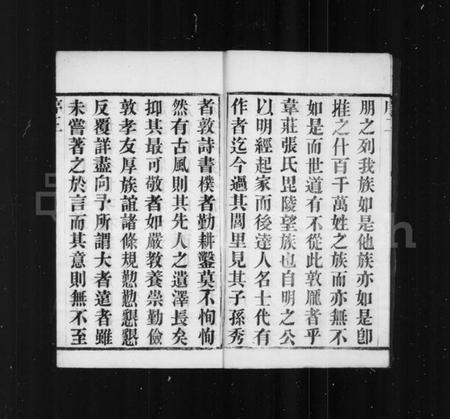 朋之列我族如是他族亦如是卽
推之什百千萬姓之族而亦無不
如是而世道有不從此敦龐者乎
韋莊張氏毘陵望族也自明之公
以明經起家而後達人名士代有
作者迄今過其閭里見其子孫秀
者敦詩書樸者勤耕鑿莫不恂恂
然有古風則其先人之遺澤長矣
抑其最可敬者如嚴教養崇勤儉
敦孝友厚族誼諸條規懃懃懇懇
反覆詳盡向予所謂大者遠者雖
未嘗著之於言而其意則無不至
序三